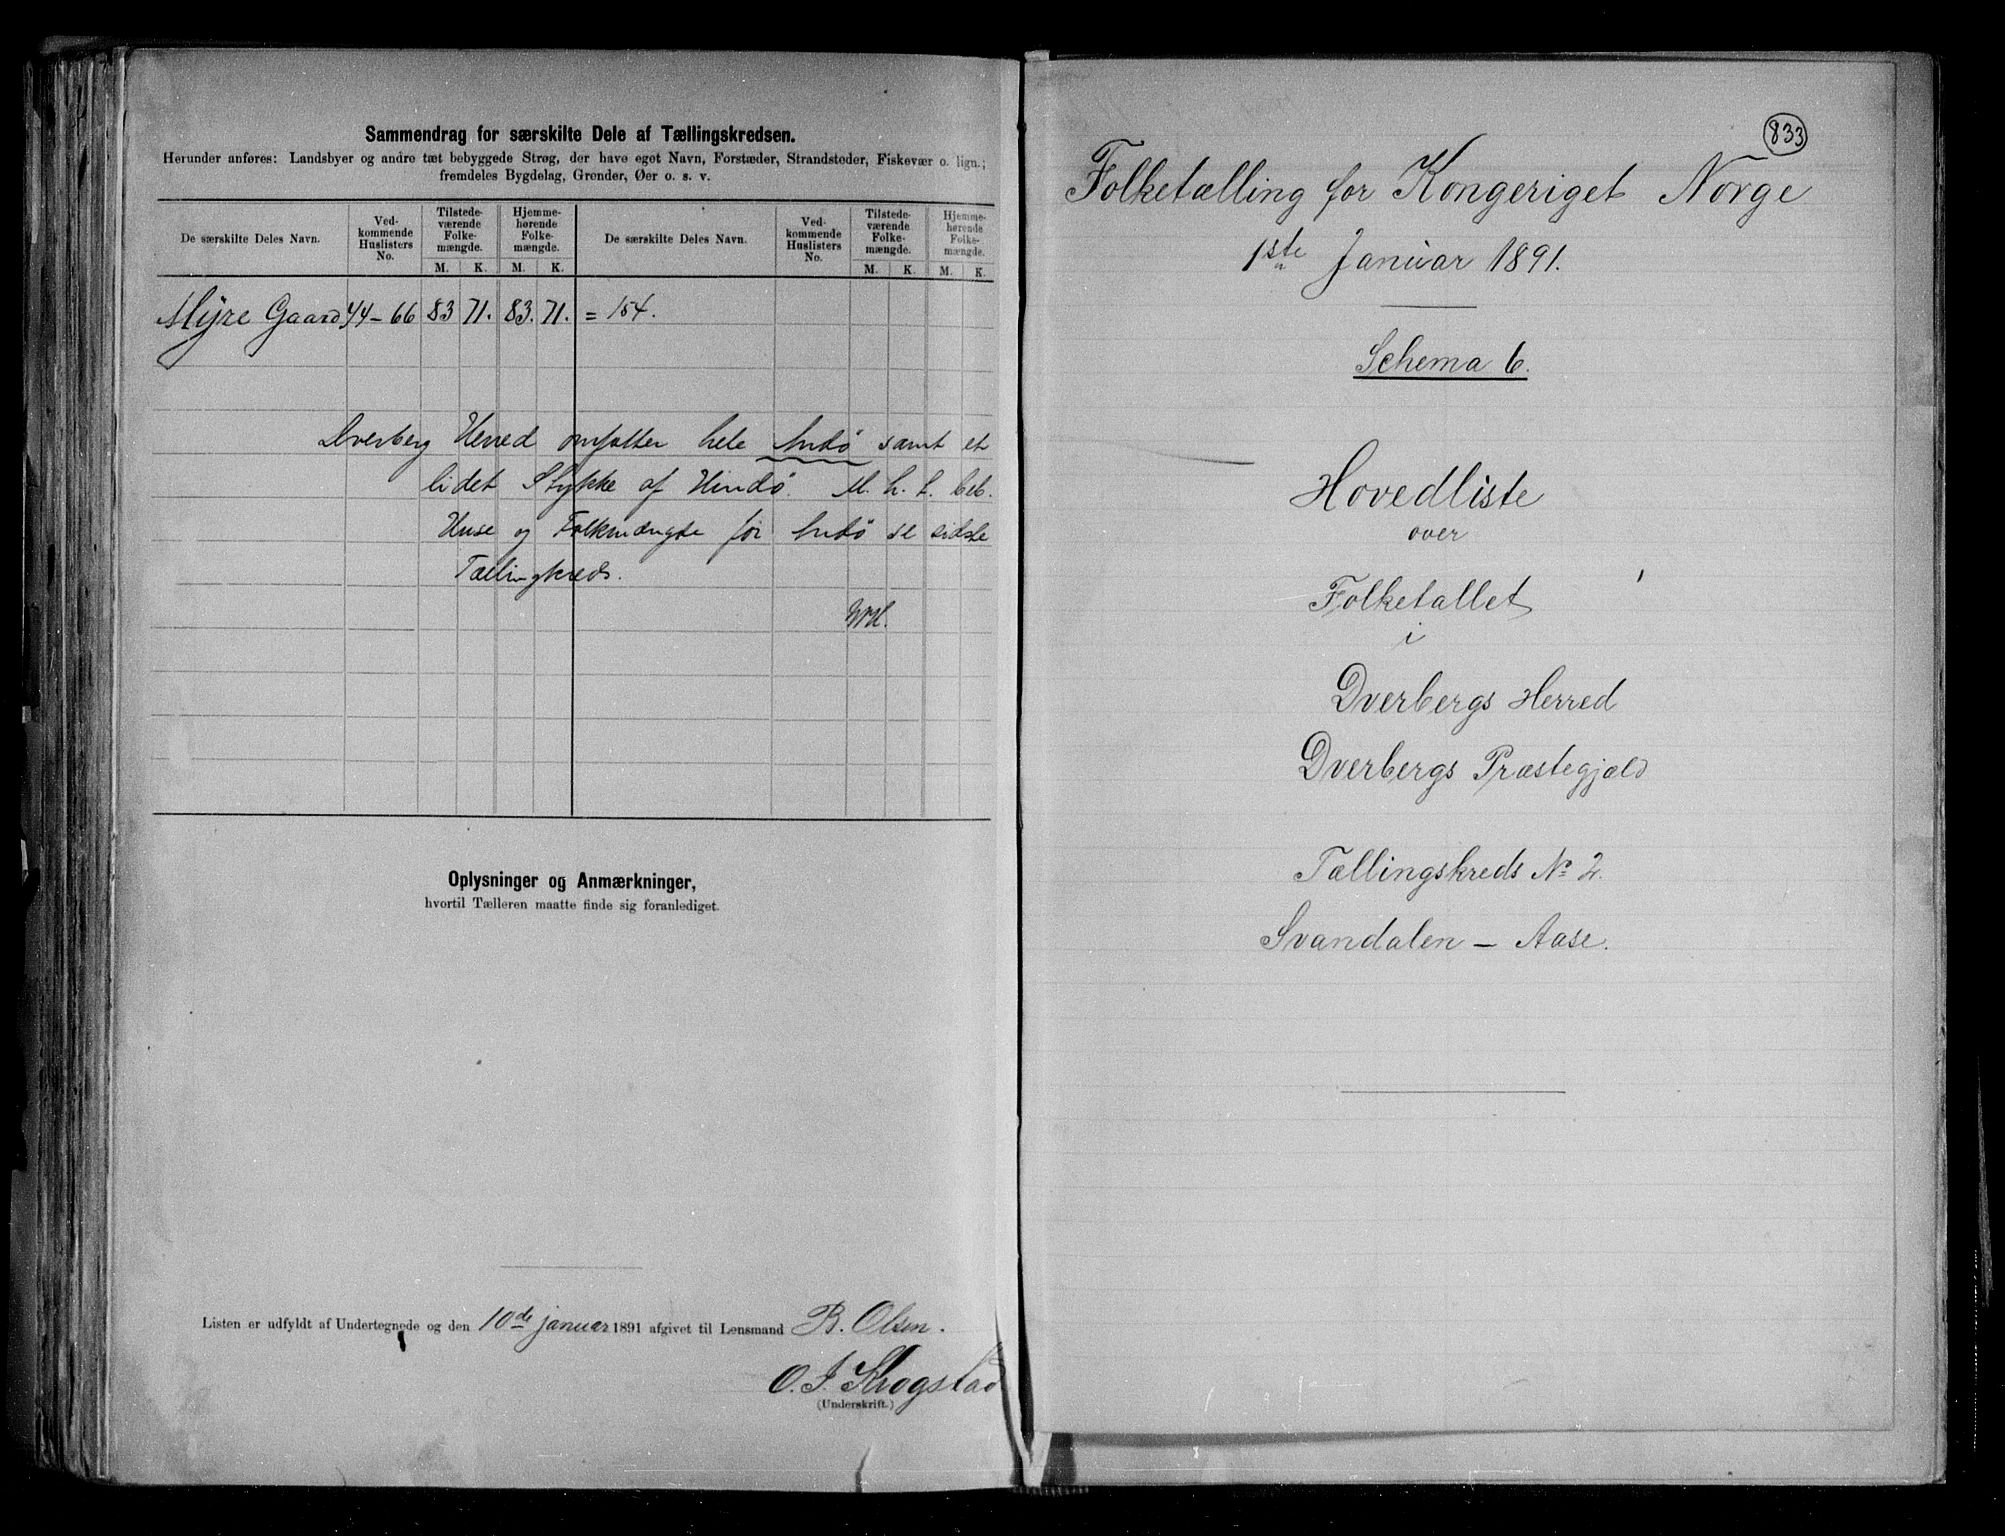 Sammendrag for særskilte Dele af Tællingskredsen.
Herunder anføres: Landsbyer og andre tæt bebyggede Strøg, der have eget Navn, Forstæder, Strandsteder, Fiskevær o. lign.;
fremdeles Bygdelag, Grender, Øer o. s. v.
De særskilte Deles Navn. Ved-kommende Huslisters No. Tilstede-værende Folke-mængde. M. K. Hjemme-hørende Folke-mængde. M. K. De særskilte Deles Navn. Ved-kommende Huslisters No. Tilstede-værende Folke-mængde. M. K. Hjemme-hørende Folke-mængde. M. K.
Myre Gaard 44-66 83 71. 83. 71. = 154.
Dverberg Herred omfatter hele Andö samt et
lidet Stykke af Hindö. M. h. t. beb.
Huse og Folkemængde for Andö se sidste
Tællingkreds.
Oplysninger og Anmærkninger,
hvortil Tælleren maatte finde sig foranlediget.
Listen er udfyldt af Undertegnede og den 10de januar 1891 afgivet til Lensmand B. Olsen.
O. J. Krogstad
(Underskrift.)
833
Folketælling for Kongeriget Norge
1ste Januar 1891.
Schema 6.
Hovedliste
over
Folketallet
i
Dverbergs Herred
Dverbergs Præstegjæld
Tællingskreds No 2.
Svandalen - Aase.